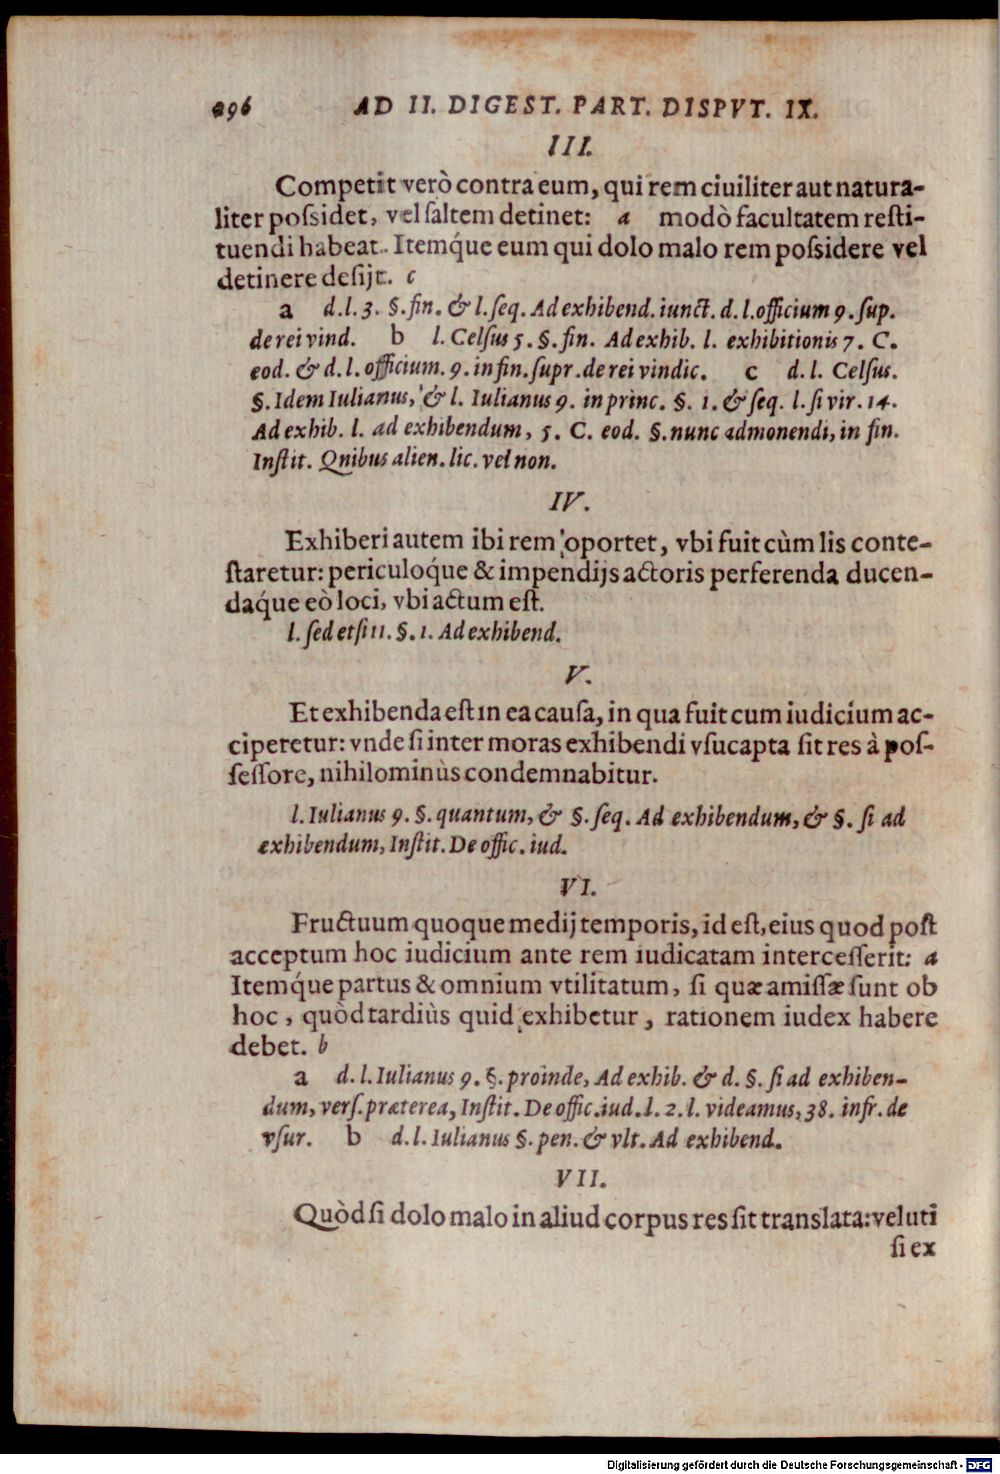 296 AD II. DIGEST. PART. DISPVT. IX.
III.
Competit verò contra eum, qui rem ciuiliter aut natura-
liter poſsidet, vel ſaltem detinet: a modò facultatem reſti-
tuendi habeat. Itemq́ue eum qui dolo malo rem poſsidere vel
detinere deſijt. c
a d. l. 3. §. fin. & l. ſeq. Ad exhibend. iunct. d. l. officium 9. ſup.
de rei vind. b l. Celſus 5. §. fin. Ad exhib. l. exhibitionis 7. C.
eod. & d. l. officium. 9. in fin. ſupr. de rei vindic. c d. l. Celſus.
§. Idem Iulianus, & l. Iulianus 9. in princ. §. 1. & ſeq. l. ſi vir. 14.
Ad exhib. l. ad exhibendum, 5. C. eod. §. nunc admonendi, in fin.
Inſtit. Qnibus alien. lic. vel non.
IV.
Exhiberi autem ibi rem oportet, vbi fuit cùm lis conte-
ſtaretur: periculoq́ue & impendijs actoris perferenda ducen-
daq́ue eò loci, vbi actum eſt.
l. ſed etſi 11. §. 1. Ad exhibend.
V.
Et exhibenda eſt in ea cauſa, in qua fuit cum iudicium ac-
ciperetur: vnde ſi inter moras exhibendi vſucapta ſit res à poſ-
ſeſſore, nihilominùs condemnabitur.
l. Iulianus 9. §. quantum, & §. ſeq. Ad exhibendum, & §. ſi ad
exhibendum, Inſtit. De offic. iud.
VI.
Fructuum quoque medij temporis, id eſt, eius quod poſt
acceptum hoc iudicium ante rem iudicatam interceſſerit: a
Itemq́ue partus & omnium vtilitatum, ſi quæ amiſſæ ſunt ob
hoc, quòd tardiùs quid exhibetur, rationem iudex habere
debet. b
a d. l. Iulianus 9. §. proinde, Ad exhib. & d. §. ſi ad exhiben-
dum, verſ. præterea, Inſtit. De offic. iud. l. 2. l. videamus, 38. infr. de
vſur. b d. l. Iulianus §. pen. & vlt. Ad exhibend.
VII.
Quòd ſi dolo malo in aliud corpus res ſit translata: veluti
ſi ex
Digitalisierung gefördert durch die Deutsche Forschungsgemeinschaft - DFG